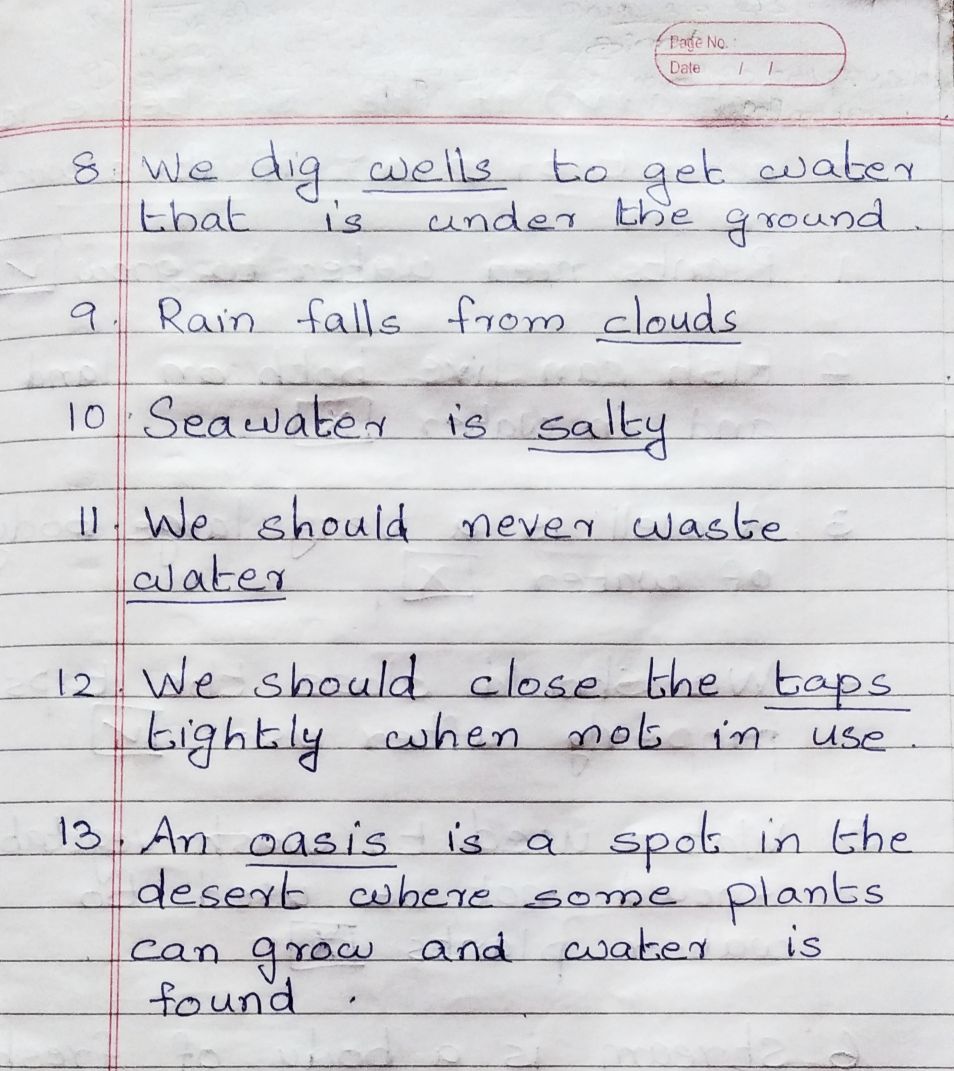 Page No.
Date / /
8. We dig wells to get water
that is under the ground.
9. Rain falls from clouds
10. Seawater is salty
11. We should never waste
water
12. We should close the taps
tightly when not in use.
13. An oasis is a spot in the
desert where some plants
can grow and water is
found.